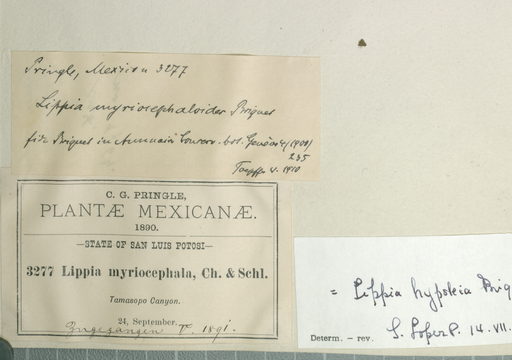 Pringle, Mexico n 3277
Lippia myriocephaloides Briquet
fide Briquet in Annuaire Conserv. bot. Genève (1904)
235
V. 1910
C. G. PRINGLE,
PLANTÆ MEXICANÆ.
1890.
—STATE OF SAN LUIS POTOSI—
3277 Lippia myriocephala, Ch. & Schl.
Tamasopo Canyon.
24, September.
Zugegangen V. 1891.
= Lippia hypoleia Briq
Determ. – rev. S. López P. 14. VII.